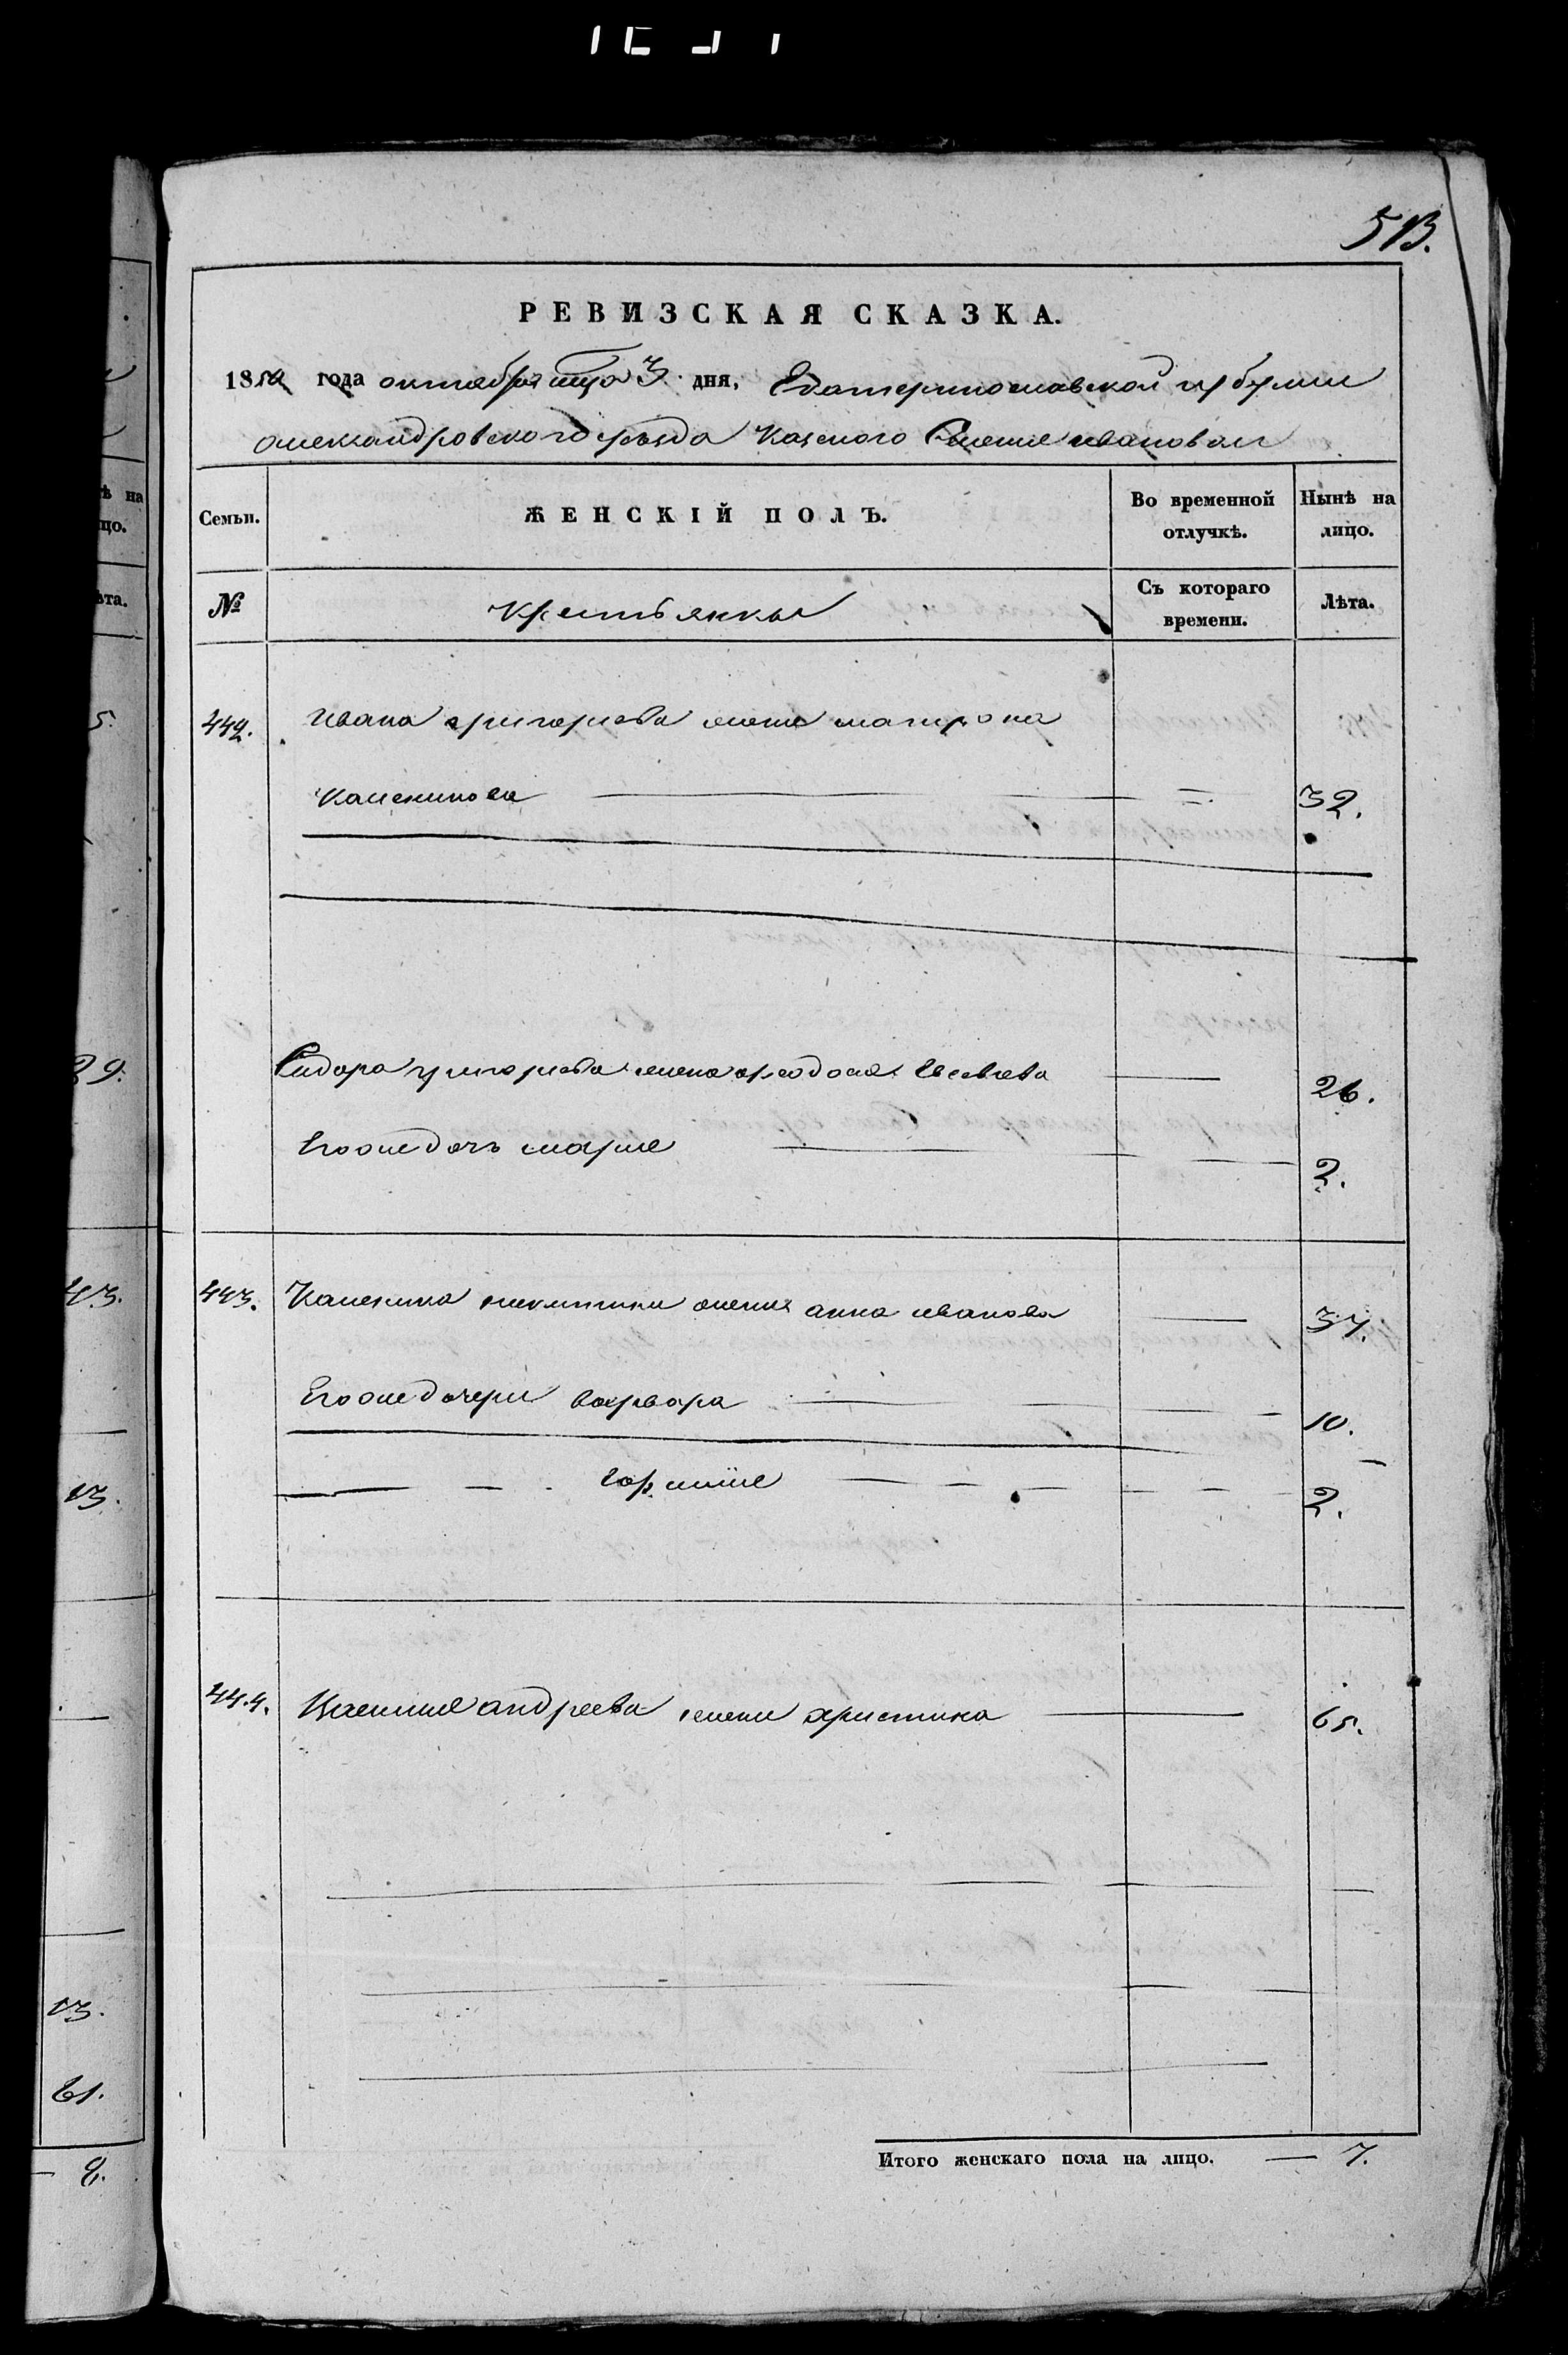 513.
РЕВИЗСКАЯ СКАЗКА.
1850 года октября мца 3 дня, Екатеринославской губернии
александровского уезда Казеного Селения ивановки
ѣ на
цо.
Семьи.
ЖЕНСКІЙ ПОЛЪ.
Во временной
отлучкѣ.
Нынѣ на
лицо.
ѣта.
№
Крестьянки
Съ котораго
времени.
Лѣта.
5.
442. Ивана григорьева жена матрона
Каленикова 32.
29.
Сидора григорьева жена феодосия Евсеева 26.
Его же дочь мария 2.
43.
443. Каленика никитина жена анна иванова 37.
Его же дочери варвара 10.
13.
2.
444. Василия андреева жена христина 65.
13.
61.
Итого женскаго пола на лицо. — 7.
— 8.